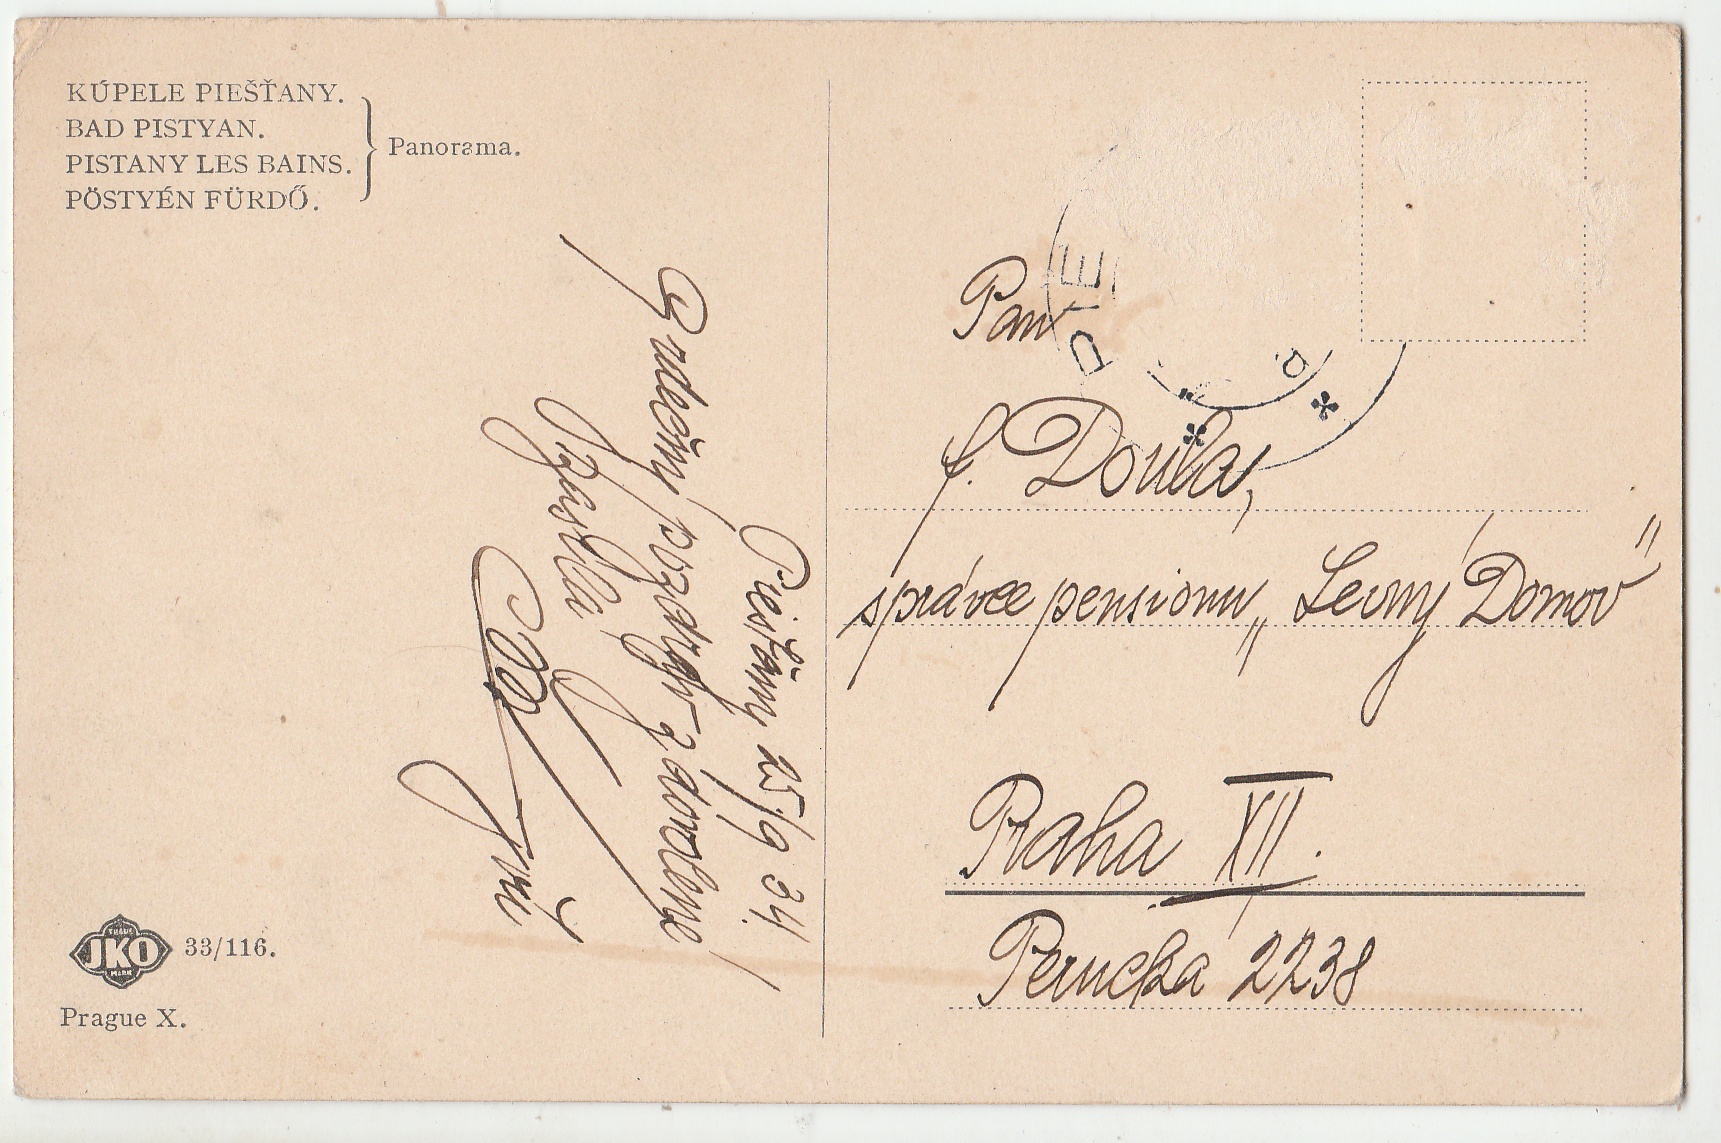 KÚPELE PIEŠŤANY.
BAD PISTYAN.
PISTANY LES BAINS.
PÖSTYÉN FÜRDŐ.
Panorama.
Piešťany 25/9 34
Srdečný pozdrav z dovolené
zasílá
Pan
f. Doula,
správce pensionu „Levný Domov"
Praha XII.
Perucká 2238
PIE
TRADE
JKO
MARK
33/116.
Prague X.